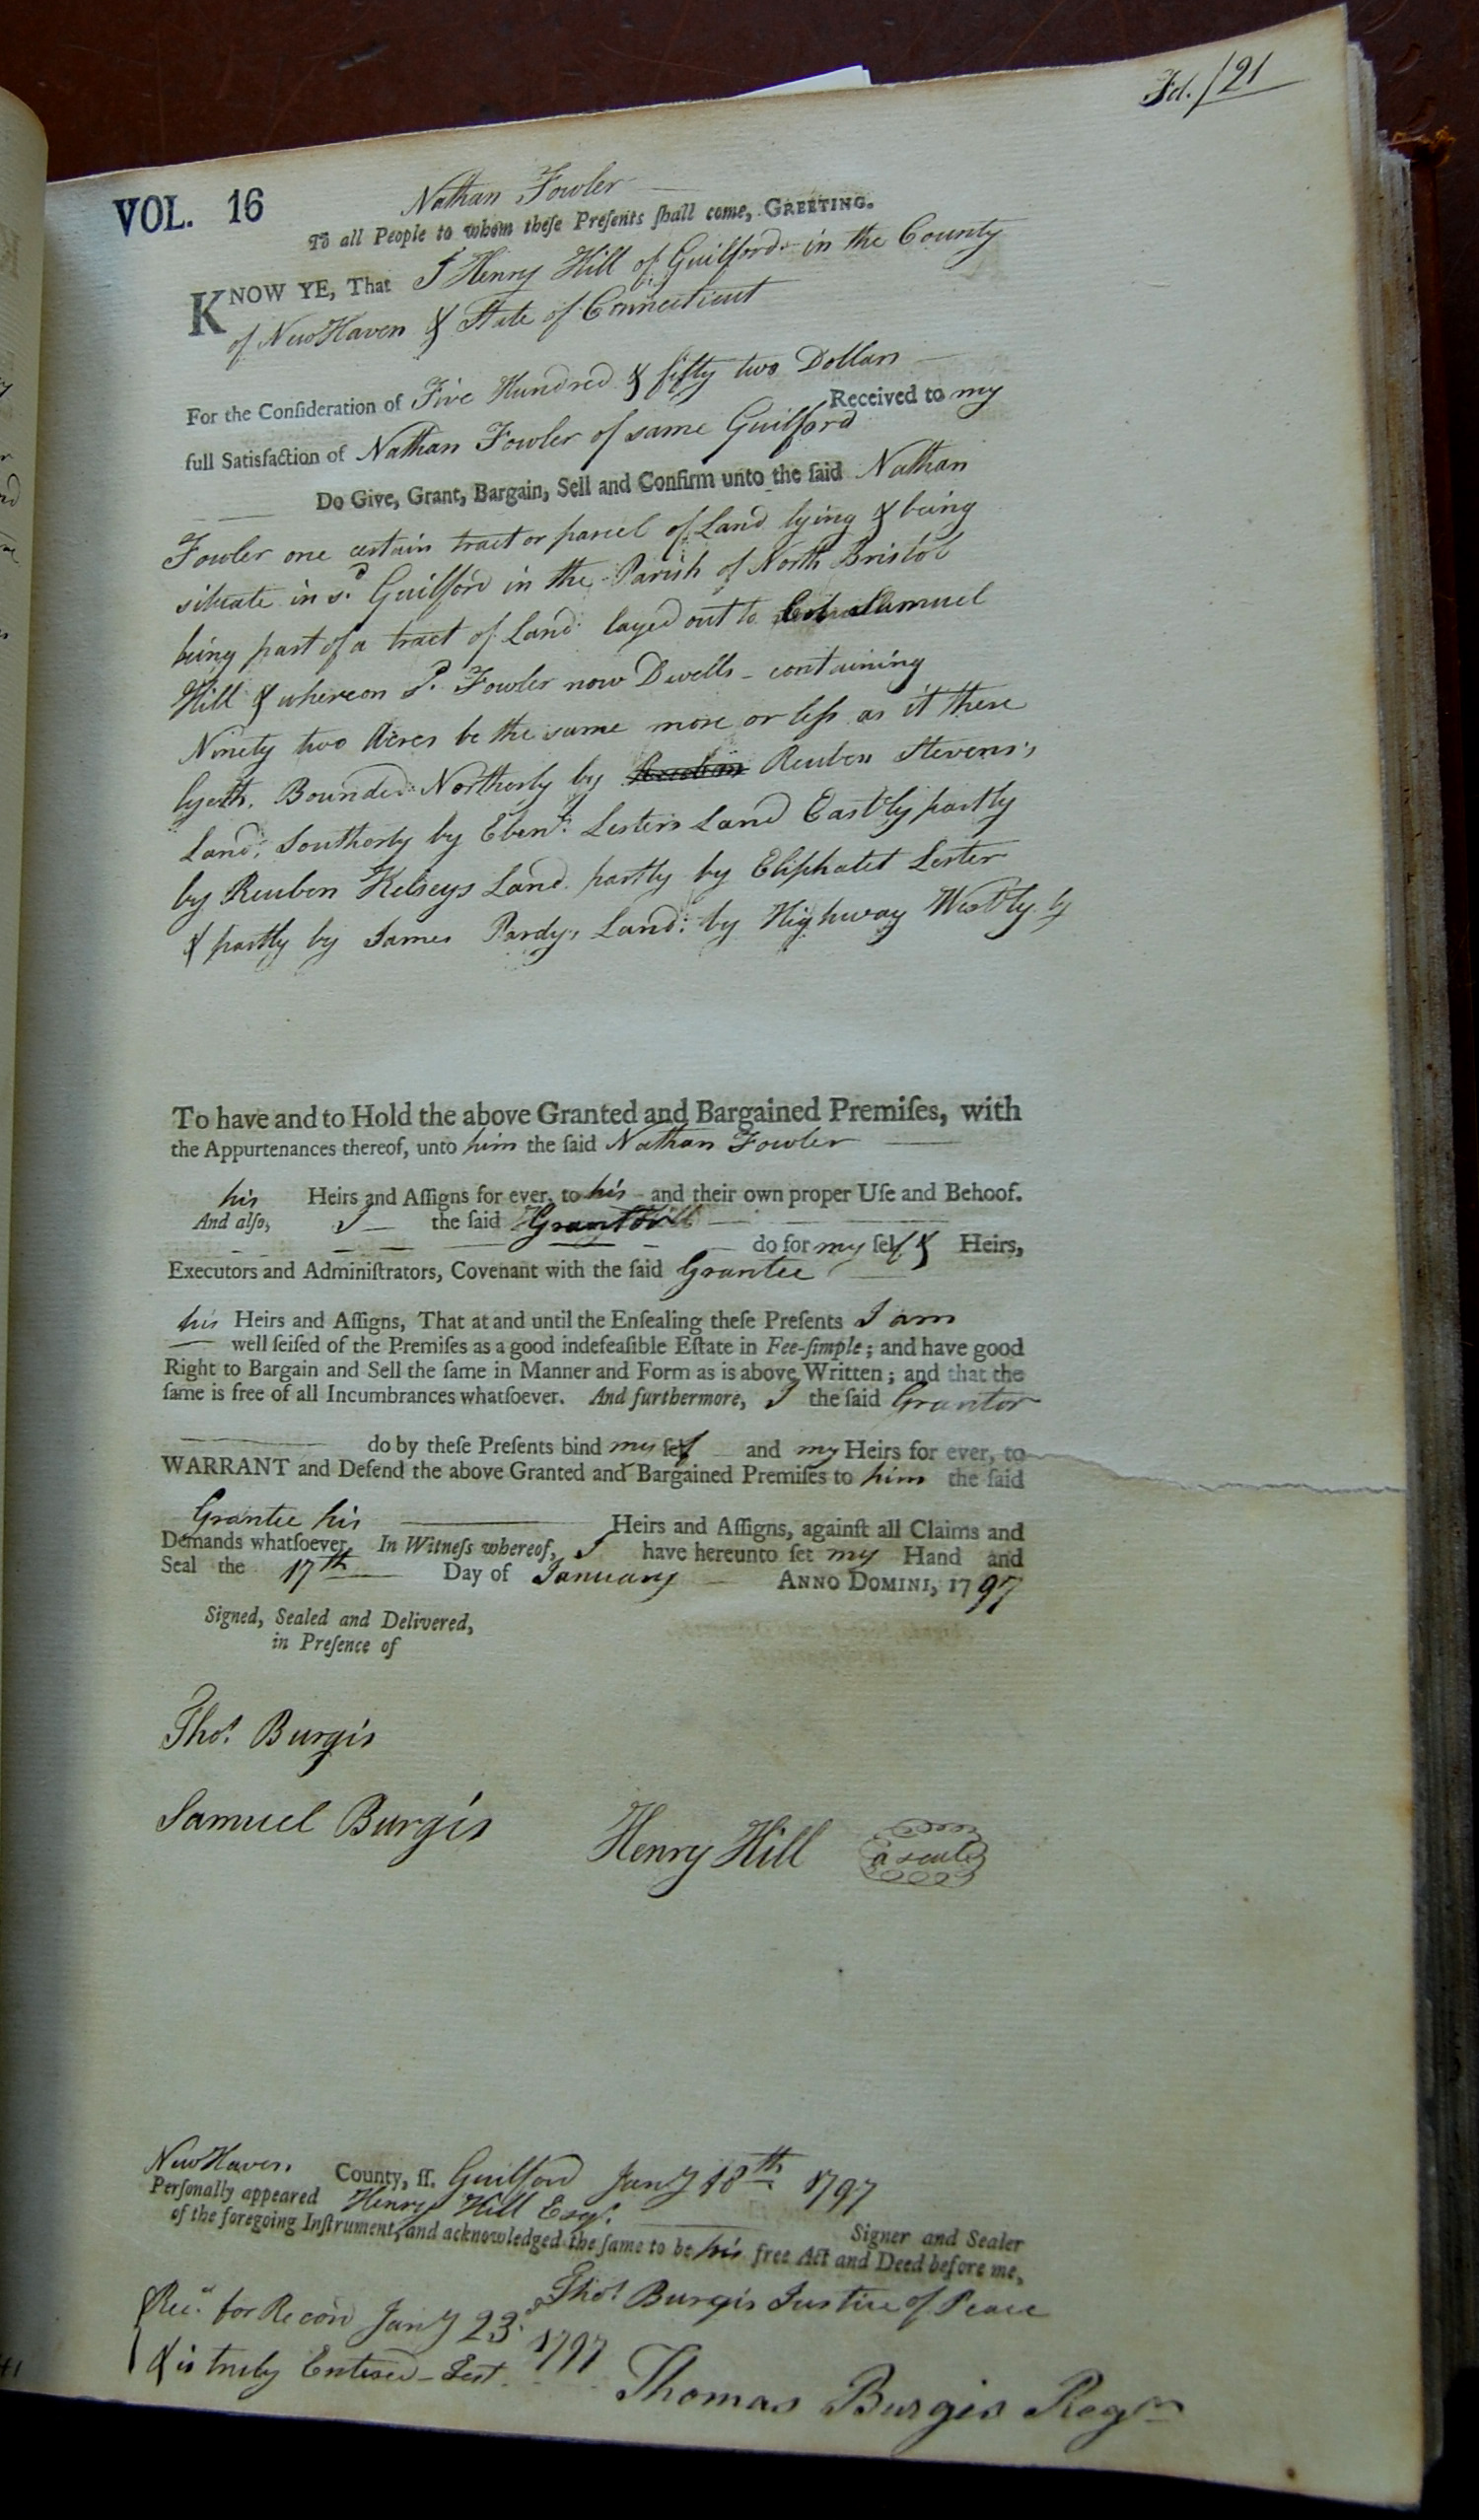 Fol. 121
VOL. 16
Nathan Fowler
To all People to whom theſe Preſents ſhall come, GREETING.
KNOW YE, That I Henry Hill of Guilford in the County
of New Haven & State of Connecticut
For the Conſideration of Five Hundred & fifty two Dollars
Received to my
full Satisfaction of Nathan Fowler of same Guilford
Do Give, Grant, Bargain, Sell and Confirm unto the ſaid Nathan
Fowler one certain tract or parcel of Land lying & being
situate in sd. Guilford in the Parish of North Bristol
being part of a tract of Land layed out to Samuel
Hill & whereon sd. Fowler now Dwells - containing
Ninety two Acres be the same more or less as it there
lyeth. Bounded Northerly by Reuben Reuben Stevens's
Land, Southerly by Ebenr. Lesters Land Eastly partly
by Reuben Kelseys Land partly by Eliphalet Lester
& partly by James Pardys Land: by Highway Westly by
To have and to Hold the above Granted and Bargained Premiſes, with
the Appurtenances thereof, unto him the ſaid Nathan Fowler
his Heirs and Aſſigns for ever, to his and their own proper Uſe and Behoof.
And alſo, I the ſaid Grantor
do for my ſelf & Heirs,
Executors and Adminiſtrators, Covenant with the ſaid Grantee
his Heirs and Aſſigns, That at and until the Enſealing theſe Preſents I am
well ſeiſed of the Premiſes as a good indefeaſible Eſtate in Fee-ſimple; and have good
Right to Bargain and Sell the ſame in Manner and Form as is above Written; and that the
ſame is free of all Incumbrances whatſoever. And furthermore, I the ſaid Grantor
do by theſe Preſents bind my ſelf and my Heirs for ever, to
WARRANT and Defend the above Granted and Bargained Premiſes to him the ſaid
Grantee his Heirs and Aſſigns, againſt all Claims and
Demands whatſoever. In Witneſs whereof, I have hereunto ſet my Hand and
Seal the 17th Day of January ANNO DOMINI, 1797
Signed, Sealed and Delivered,
in Preſence of
Thos. Burgis
Samuel Burgis
Henry Hill a seal
New Haven County, ſſ. Guilford Jany 18th 1797
Perſonally appeared Henry Hill Esqr.
Signer and Sealer
of the foregoing Inſtrument, and acknowledged the ſame to be his free Act and Deed before me,
Thos. Burgis Justice of Peace
Recd. for Record Jany 23d. 1797
& is truly Entered - Test.
Thomas Burgis Regr